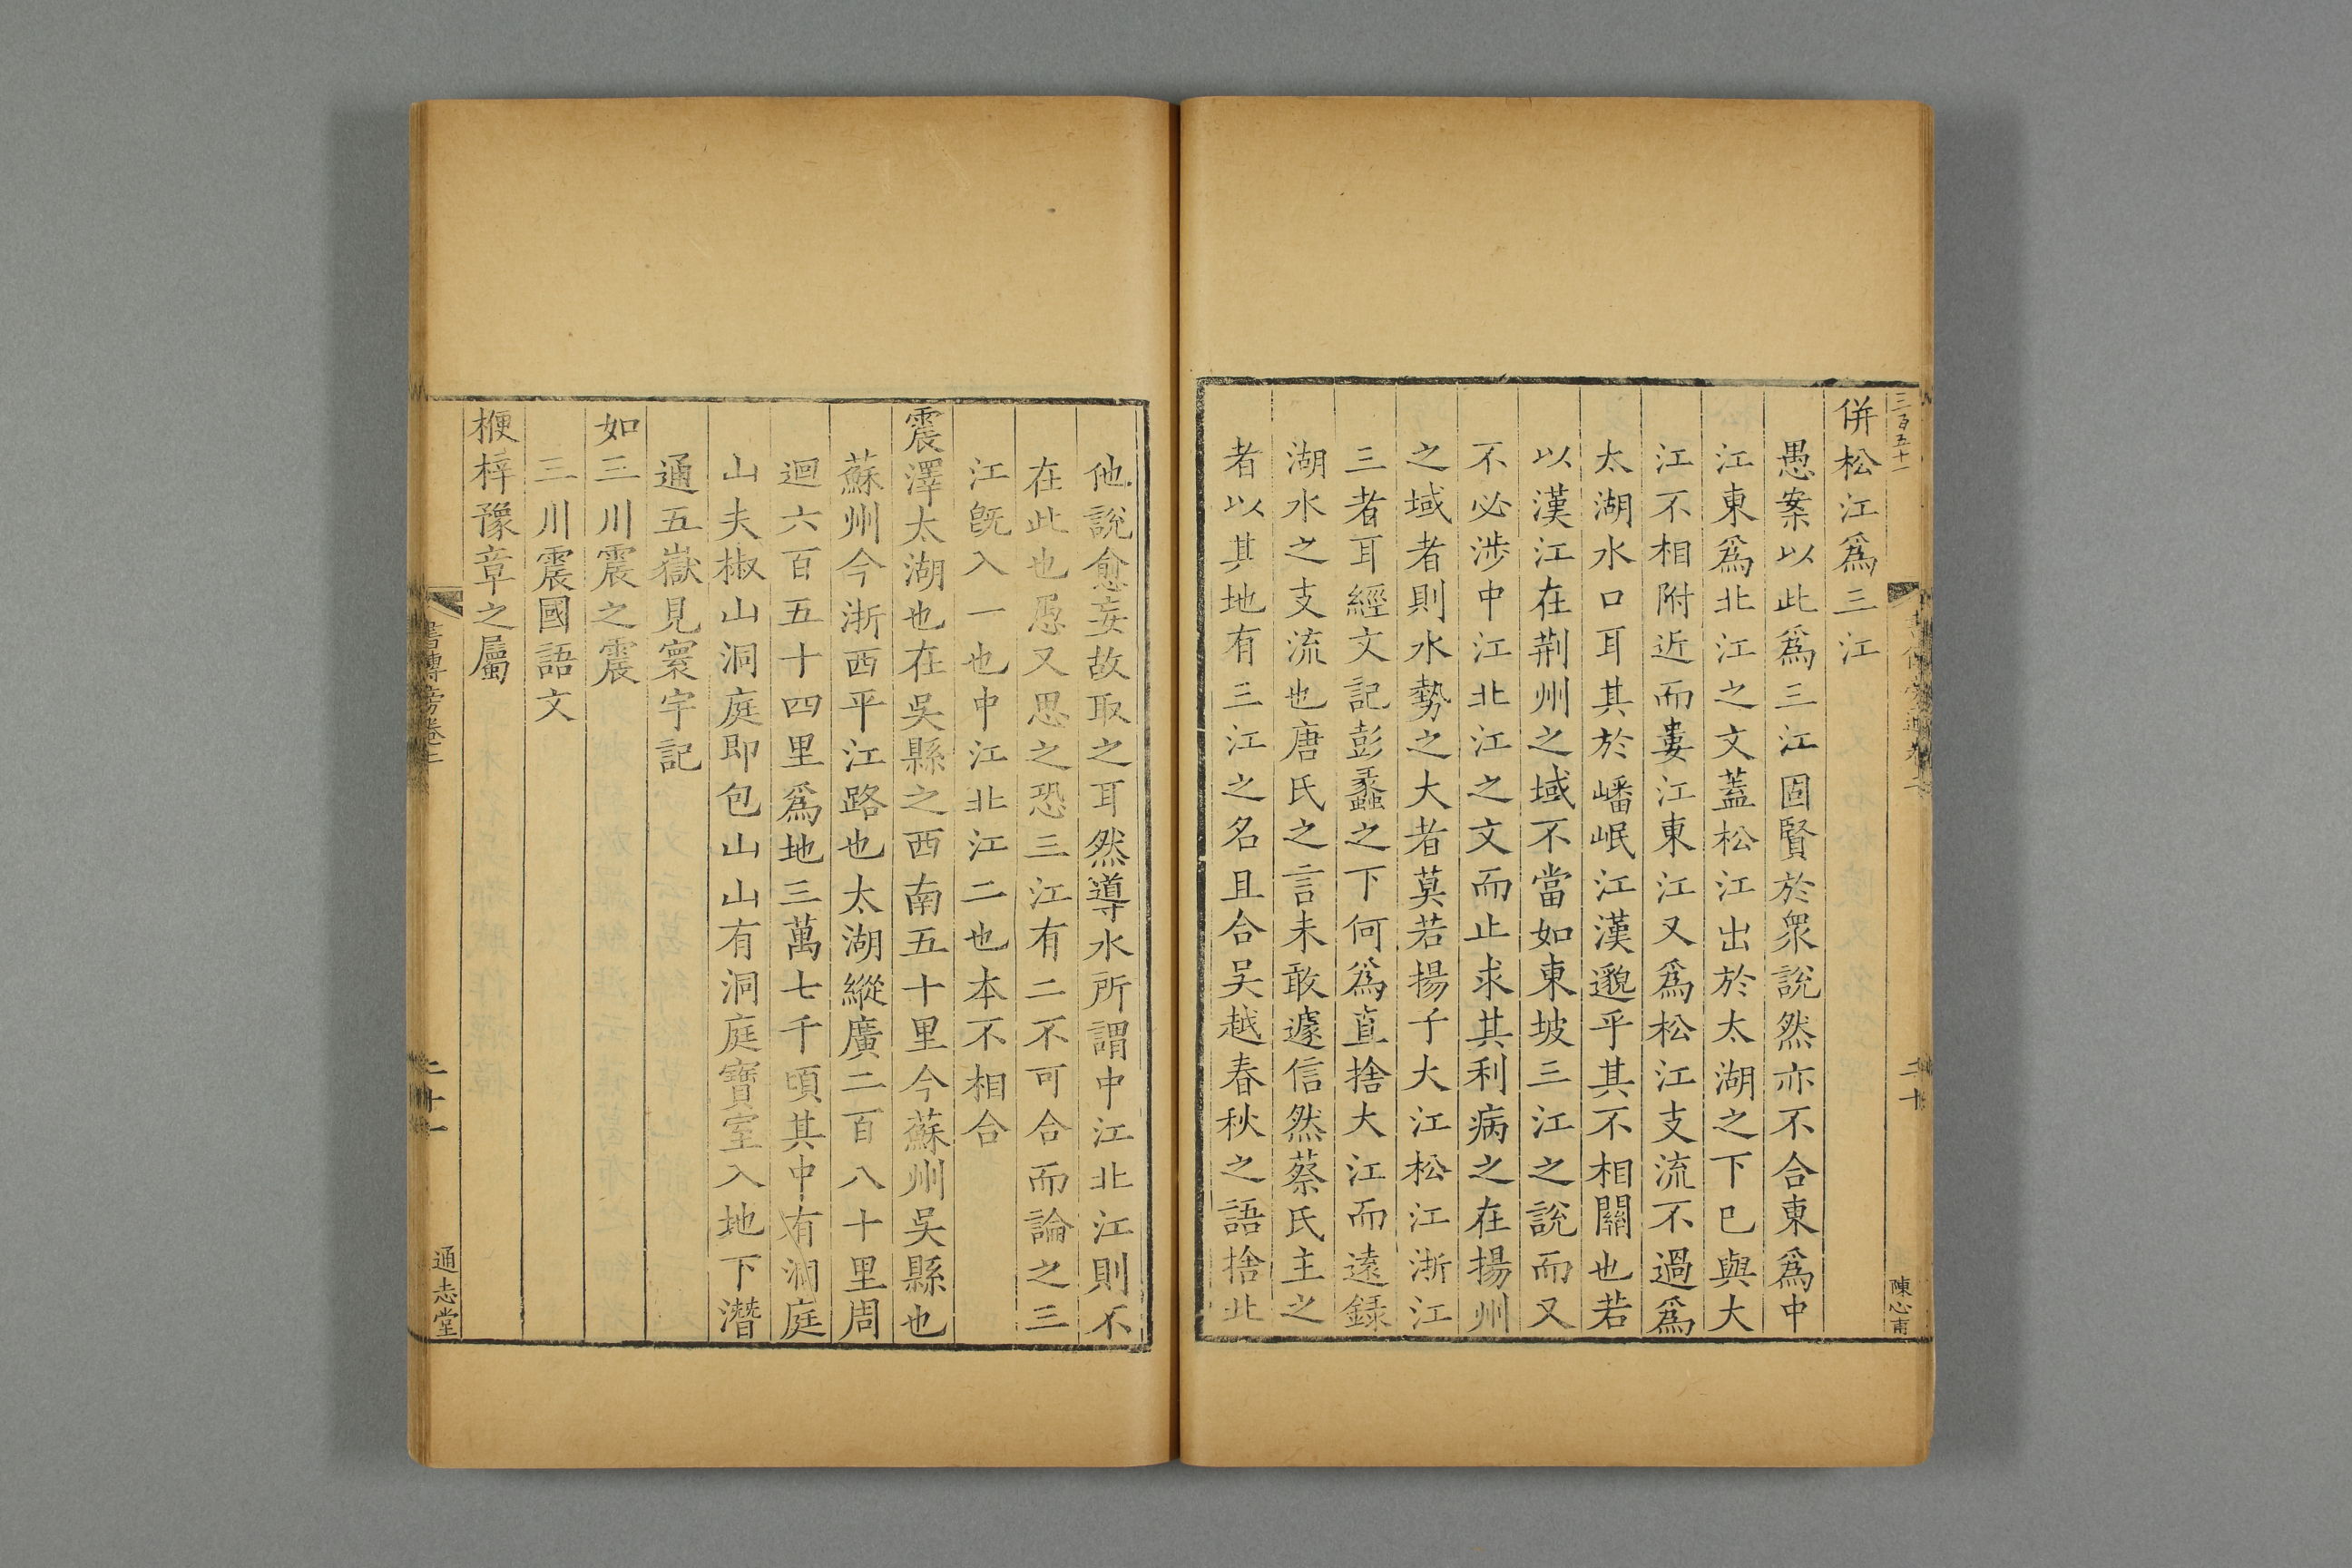 三百五十一
陳心甫
併松江爲三江
愚案以此爲三江固賢於衆說然亦不合東爲中
江東爲北江之文蓋松江出於太湖之下已與大
江不相附近而婁江東江又爲松江支流不過爲
太湖水口耳其於嶓岷江漢邈乎其不相關也若
以漢江在荆州之域不當如東坡三江之說而又
不必涉中江北江之文而止求其利病之在揚州
之域者則水勢之大者莫若揚子大江松江浙江
三者耳經文記彭蠡之下何爲直捨大江而遠録
湖水之支流也唐氏之言未敢遽信然蔡氏主之
者以其地有三江之名且合吴越春秋之語捨此
他說愈妄故取之耳然導水所謂中江北江則不
在此也愚又思之恐三江有二不可合而論之三
江旣入一也中江北江二也本不相合
震澤太湖也在吳縣之西南五十里今蘇州吳縣也
蘇州今浙西平江路也太湖縱廣二百八十里周
迴六百五十四里爲地三萬七千頃其中有洞庭
山夫椒山洞庭即包山山有洞庭寶室入地下潛
通五嶽見寰宇記
如三川震之震
三川震國語文
楩梓豫章之屬
書傳旁卷二
二十一
通志堂